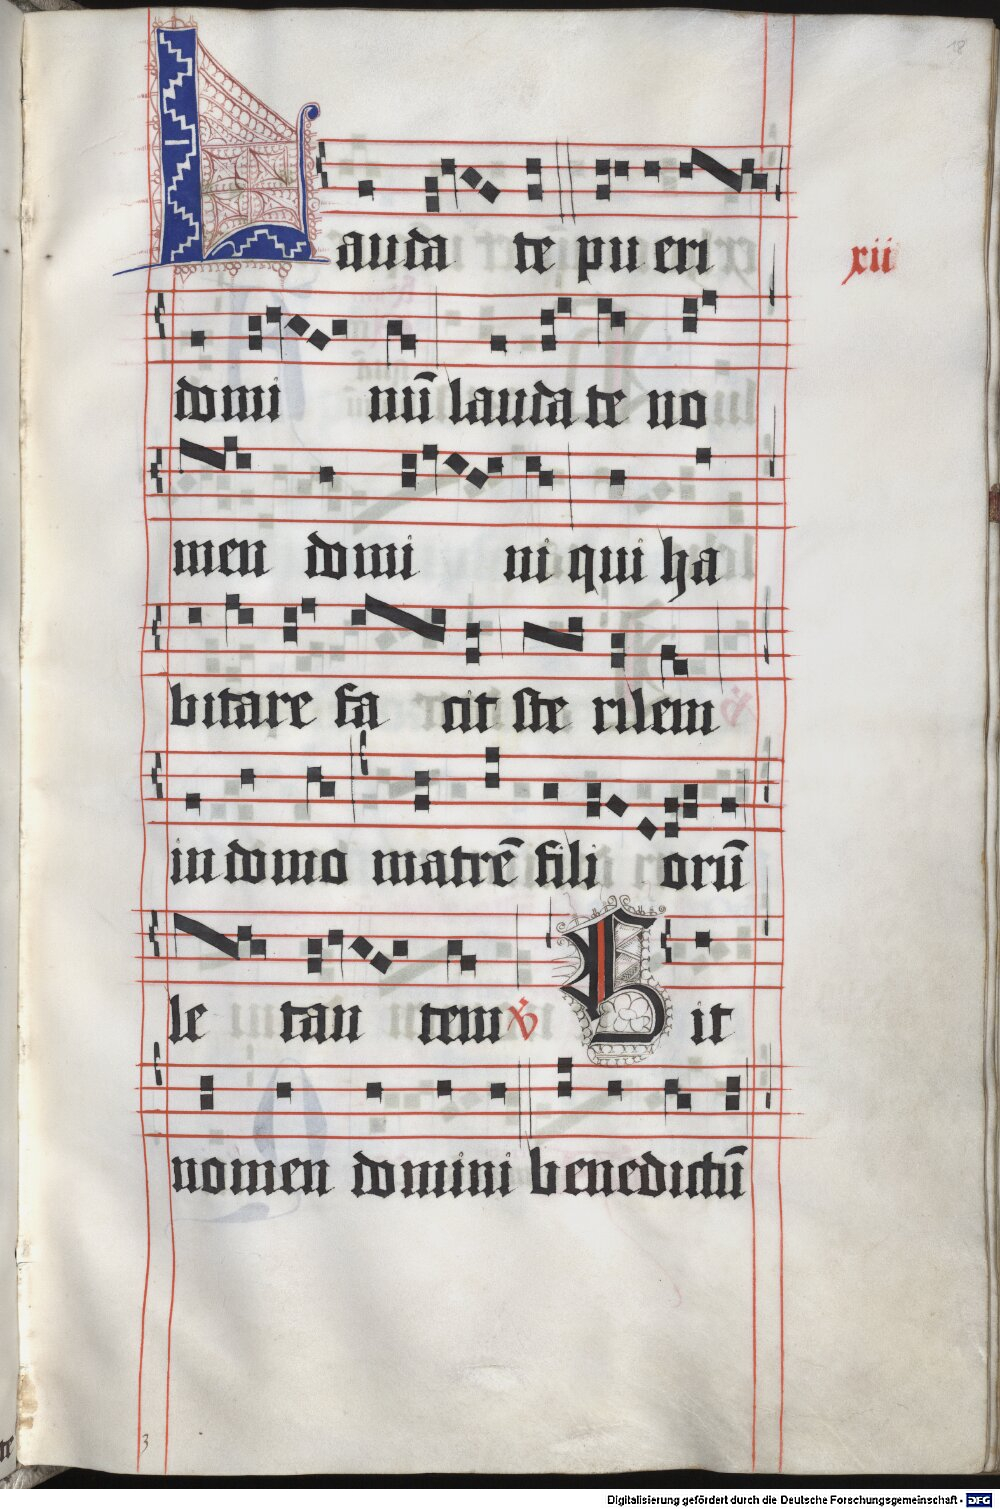 18
Lauda te pu eri
xii
domi nū lauda te no
men domi ni qui ha
bitare fa cit ste rilem
in domo matrē fili orū
le tan tem ℣ Sit
nomen domini benedictū
3
Digitalisierung gefördert durch die Deutsche Forschungsgemeinschaft - DFG